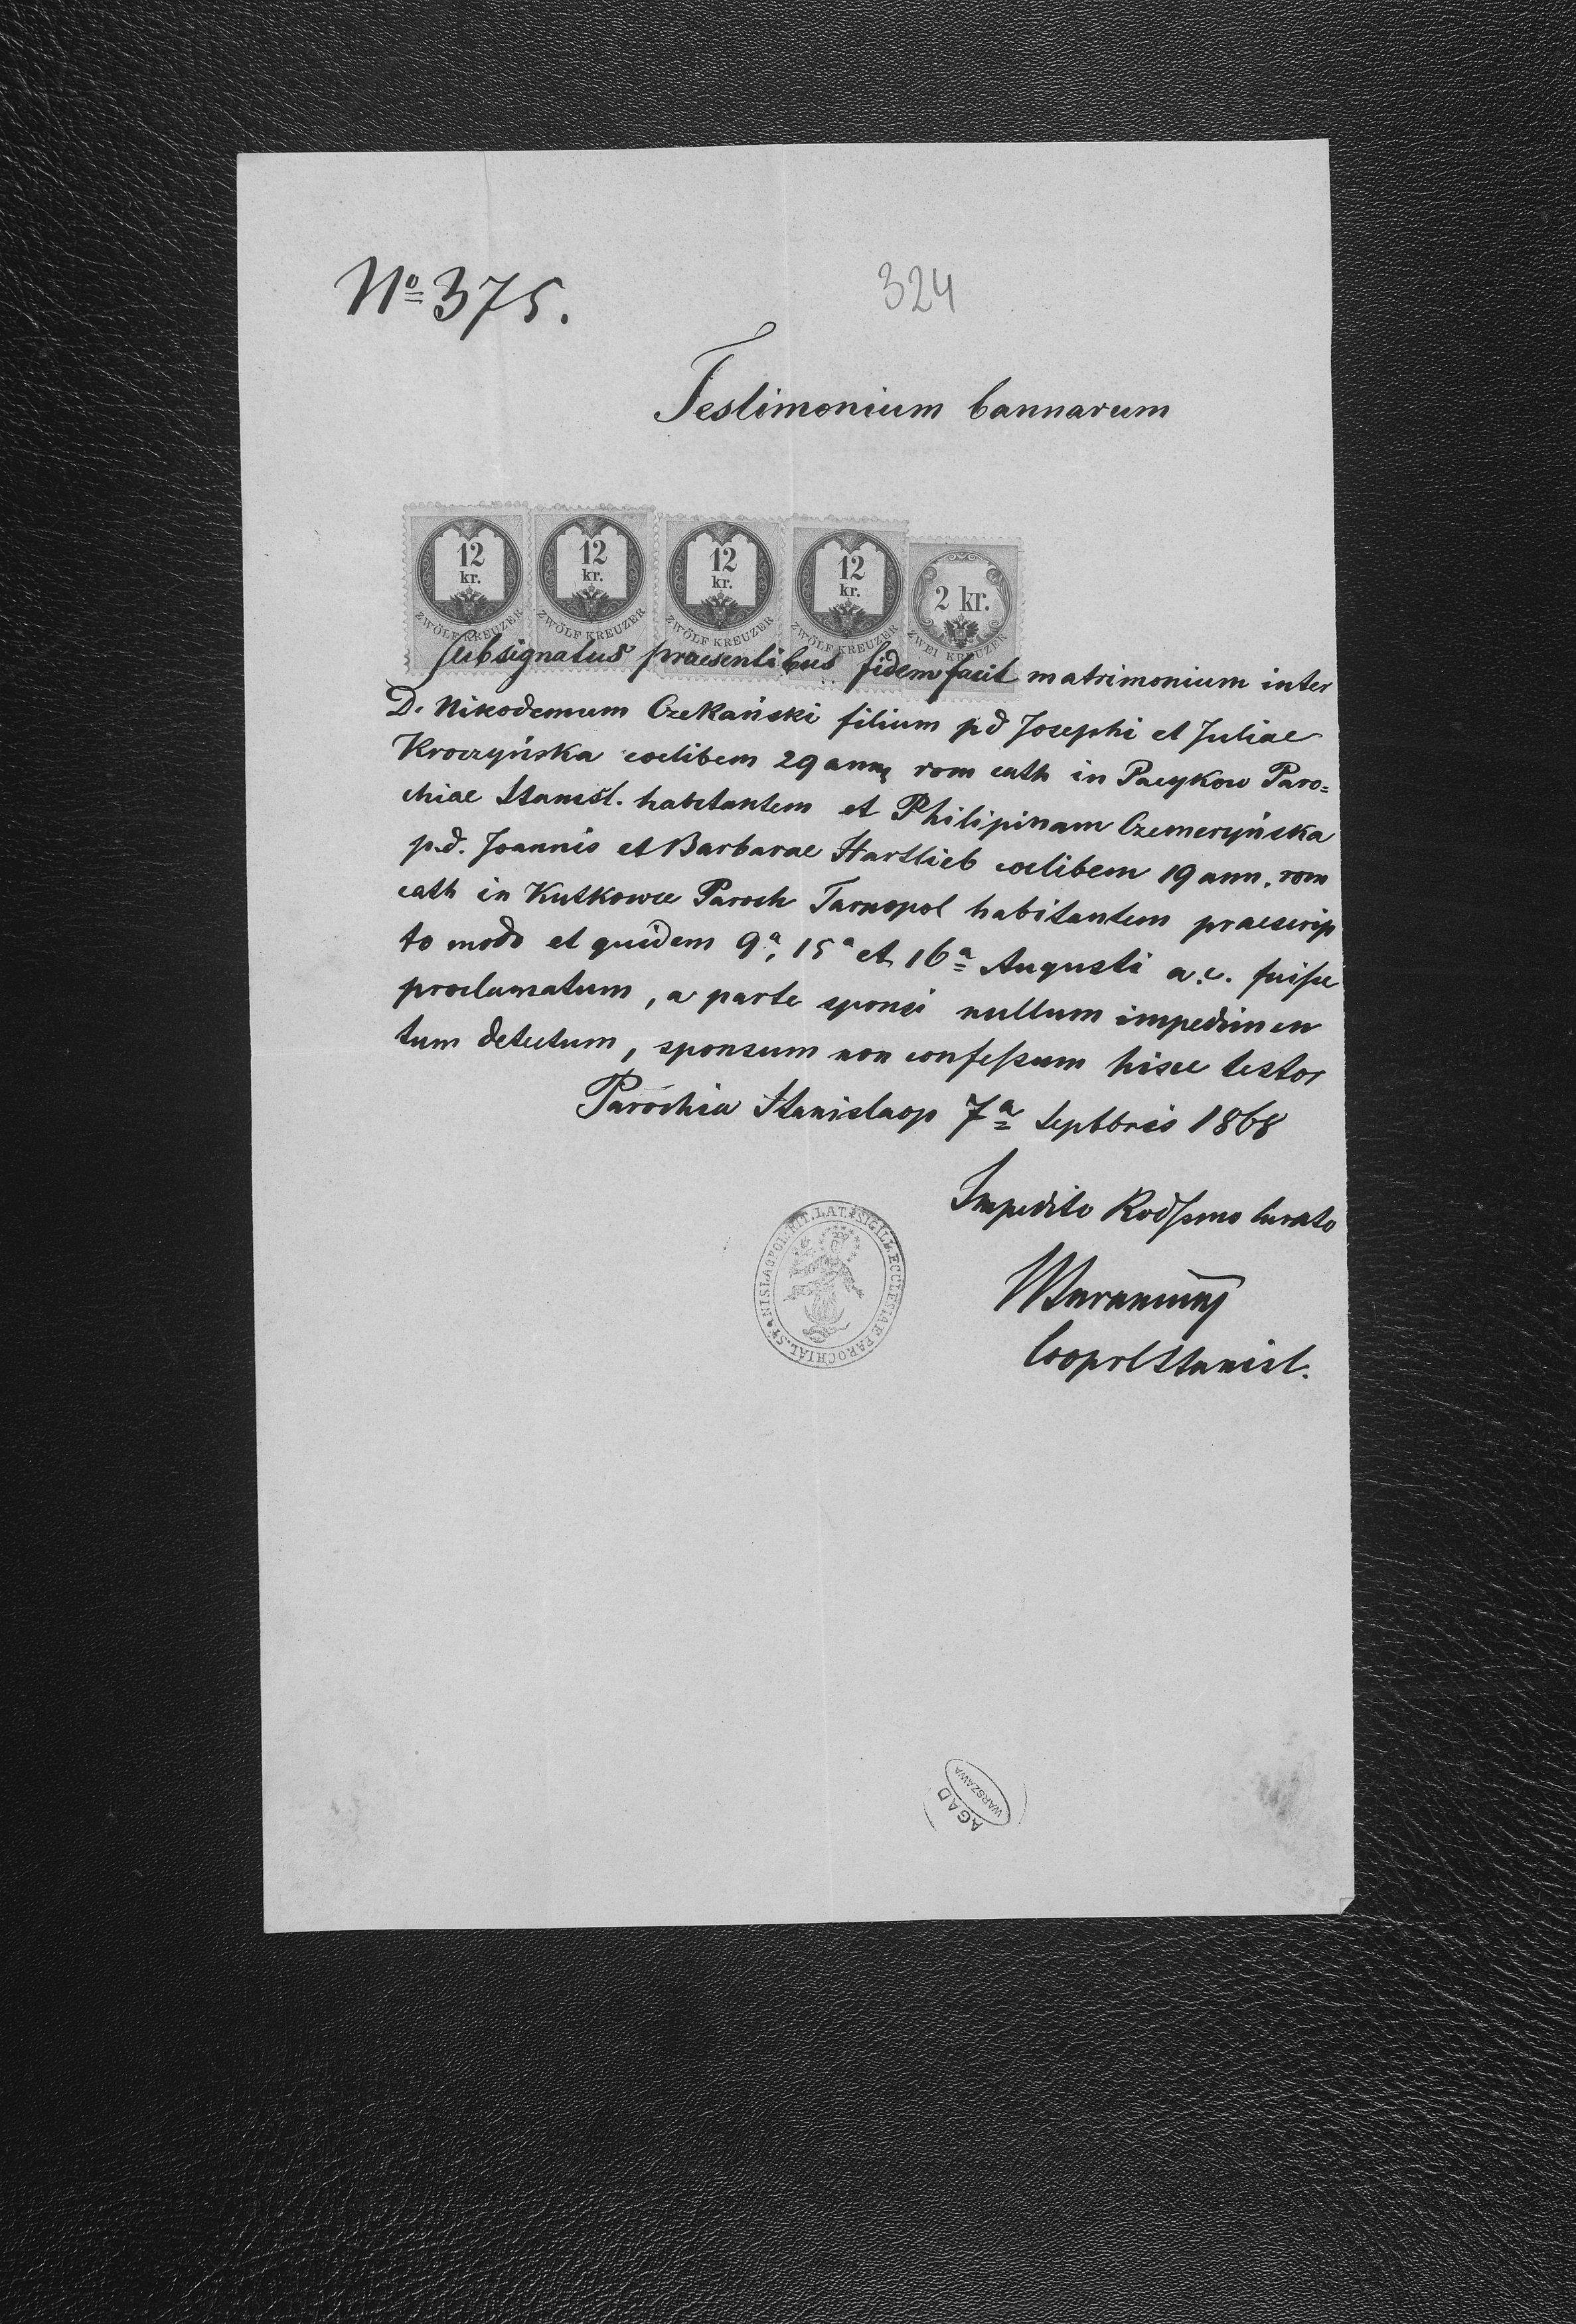 Nº 375.
324
Testimonium bannarum
12 kr. ZWÖLF KREUZER
12 kr. ZWÖLF KREUZER
12 kr. ZWÖLF KREUZER
12 kr. ZWÖLF KREUZER
2 kr. ZWEI KREUZER
Subsignatus praesentibus fidem facit matrimonium inter
D. Nikodemum Czekański filium pd Josephi et Juliae
Kroczyńska coelibem 29 ann, rom cath in Pacykow Paro=
chiae Stanisl. habitantem et Philipinam Czemeryńska
p.d. Joannis et Barbarae Hartlieb coelibem 19 ann. rom
cath in Kutkowce Paroch Tarnopol habitantem praescrip
to modo et quidem 9ª, 15ª et 16ª Augusti a.c. fuisse
proclamatum, a parte sponsi nullum impedimen
tum detectum, sponsum non confessum hisce testor
Parochia Stanislaop 7ª Septbris 1868
Impedito Rvdssmo Curato
Cooprt Stanisl.
SIGILL. ECCLESIAE PAROCHIAL. STANISLAOPOL. RIT. LAT.
AGAD
WARSZAWA